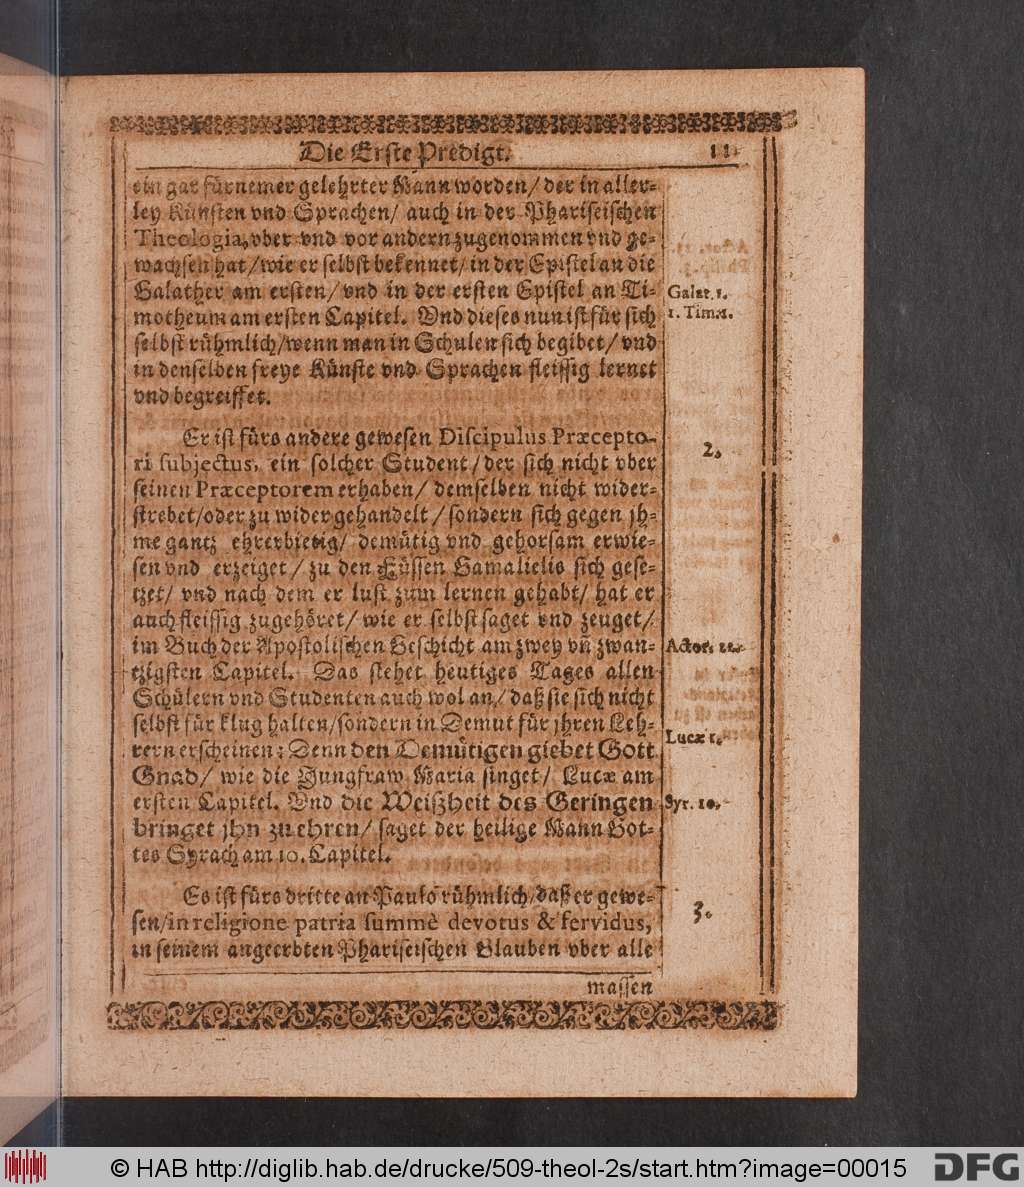 Die Erste Predigt. 11.
ein gar fürnemer gelehrter Mann worden/ der in aller-
ley Künsten vnd Sprachen/ auch in der Phariseischen
Theologia, vber vnd vor andern zugenommen vnd ge-
wachsen hat/ wie er selbst bekennet/ in der Epistel an die
Galather am ersten/ vnd in der ersten Epistel an Ti-
Galat. 1.
motheum am ersten Capitel. Vnd dieses nun ist für sich
1. Tim. 1.
selbst rühmlich/ wenn man in Schulen sich begibet/ vnd
in denselben freye Künste vnd Sprachen fleissig lernet
vnd begreiffet.
Er ist fürs andere gewesen Discipulus Præcepto-
2.
ri subjectus, ein solcher Student/ der sich nicht vber
seinen Præceptorem erhaben/ demselben nicht wider-
strebet/ oder zu wider gehandelt/ sondern sich gegen jh-
me gantz ehrerbietig/ demütig vnd gehorsam erwie-
sen vnd erzeiget/ zu den Füssen Gamalielis sich gese-
tzet/ vnd nach dem er lust zum lernen gehabt/ hat er
auch fleissig zugehöret/ wie er selbst saget vnd zeuget/
im Buch der Apostolischen Geschicht am zwey vñ zwan-
Actor. 22.
tzigsten Capitel. Das stehet heutiges Tages allen
Schülern vnd Studenten auch wol an/ daß sie sich nicht
selbst für klug halten/ sondern in Demut für jhren Leh-
rern erscheinen: Denn den Demütigen giebet Gott
Lucæ 1.
Gnad/ wie die Jungfraw Maria singet/ Lucæ am
ersten Capitel. Vnd die Weißheit des Geringen
Syr. 10.
bringet jhn zu ehren/ saget der heilige Mann Got-
tes Syrach am 10. Capitel.
Es ist fürs dritte an Paulo rühmlich/ daß er gewe-
3.
sen/ in religione patria summè devotus & fervidus,
in seinem angeerbten Phariseischen Glauben vber alle
massen
© HAB http://diglib.hab.de/drucke/509-theol-2s/start.htm?image=00015
DFG